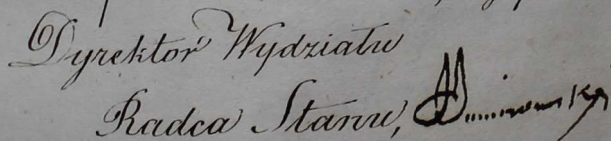 Dyrektor Wydziału
Radca Stanu,